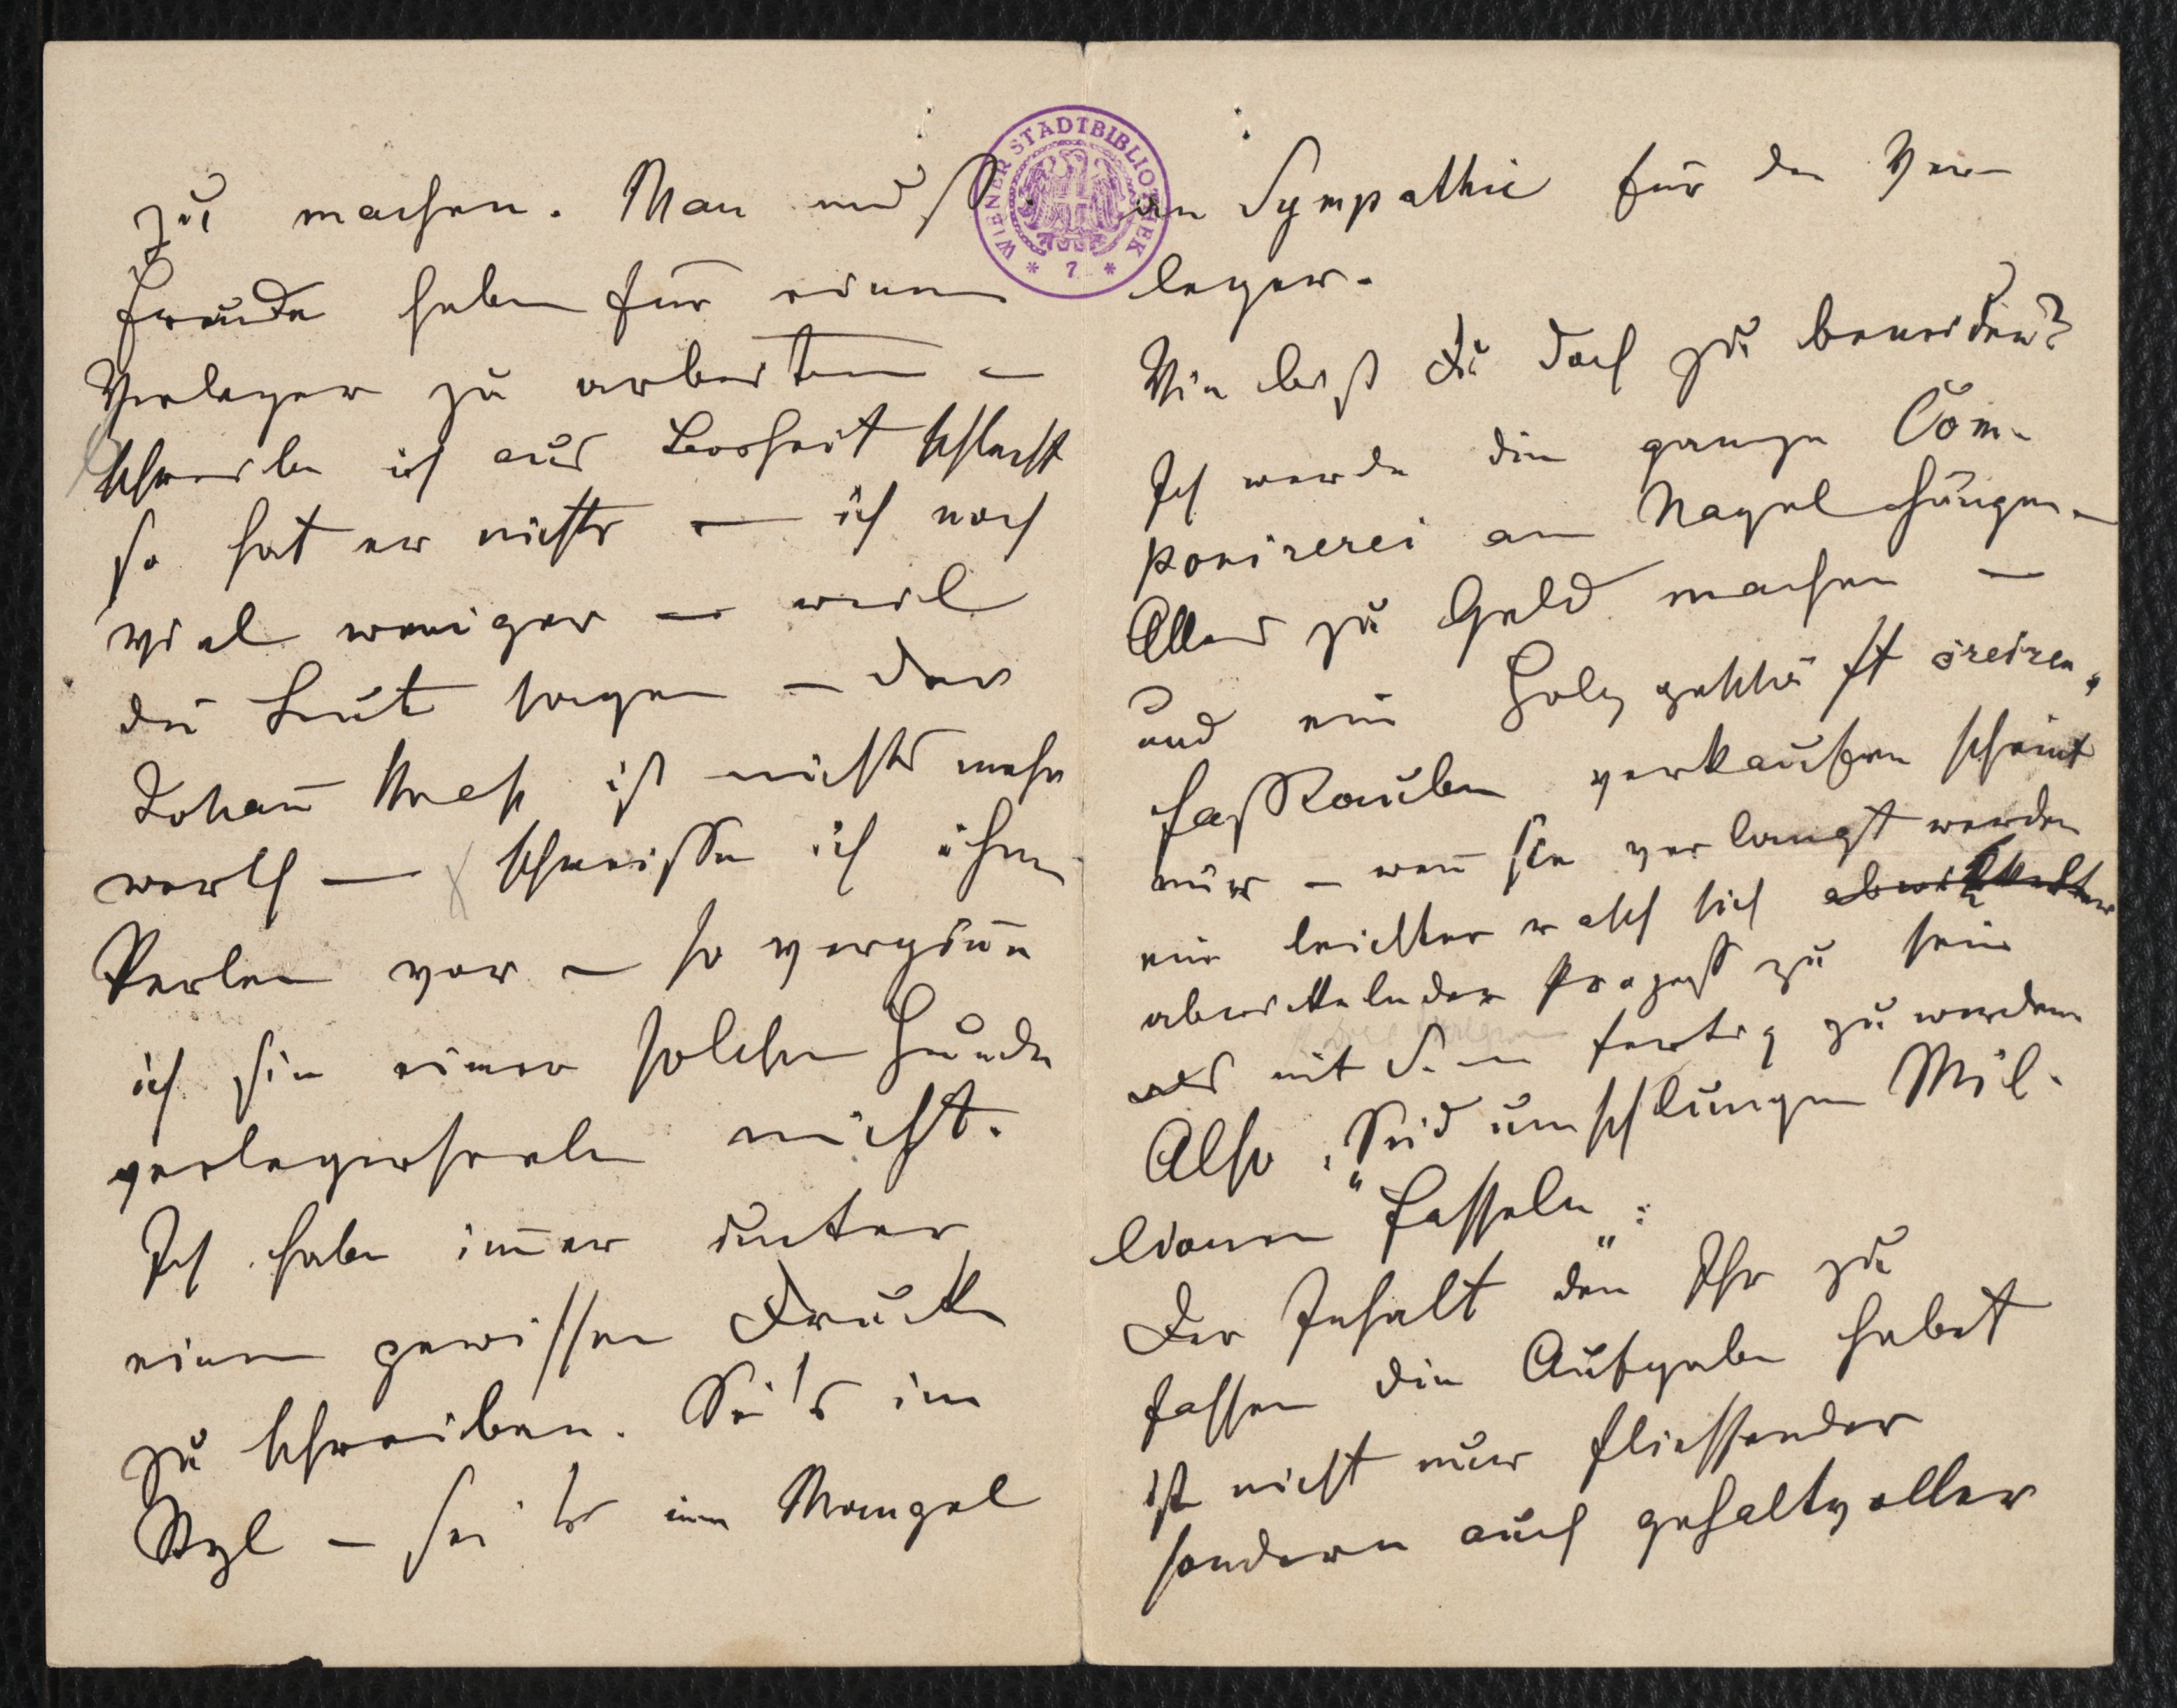 zu machen. Man muß
Freude haben für einen
Verleger zu arbeiten –
schreibe ich aus Bosheit schlecht
so hat er nichts – ich noch
viel weniger – weil
die Leut sagen – der
Johañ ist nichts mehr
werth – schmeisse ich ihm
Perlen vor – so vergöñe
ich sie einer solchen Hunde
verlegerseele nicht.
Ich habe im̄er unter
einem gewissen Drucke
zu schreiben. Sei's im
Styl – sei's im Mangel
WIENER STADTBIBLIOTHEK
* 7 *
an Sympathie für den Ver-
leger.
Wie bist Du doch zu beneiden?
Ich werde die ganze Com-
ponirerei am Nagel hängen –
Alles zu Geld machen –
und ein Holzgeschäft
Faßdauben verkaufen scheint
nur – weñ sie verlangt werden
ein leichter rasch sich
abwickelnder Prozeß zu sein
mit S. – fertig zu werden
Also „Seid umschlungen Mil-
lionen fasseln“:
Der Inhalt den Ihr zu
fassen die Aufgabe habet
ist nicht nur fliessender
sondern auch gehaltvoller